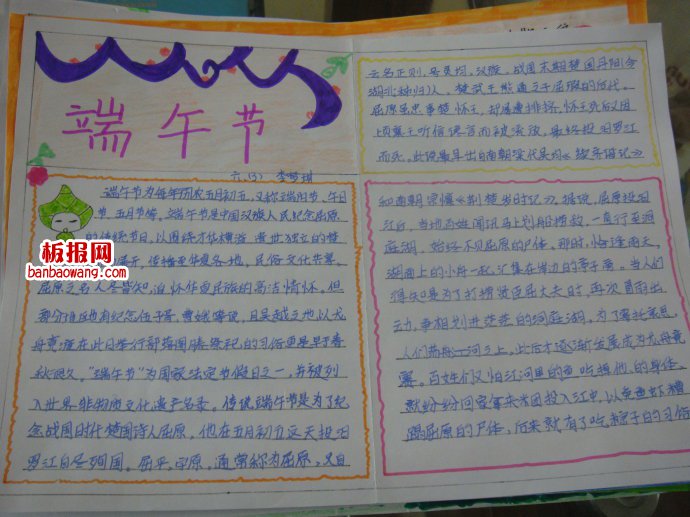 端午节
六、(3) 李梦琪
端午节为每年农历五月初五,又称端阳节、午日
节、五月节等。端午节是中国汉族人民纪念屈原
的传统节日,以围绕才华横溢、遗世独立的楚
展开,传播至华夏各地,民俗文化共享,
屈原之名人尽皆知,追怀华夏民族的高洁情怀。但
部分地区也有纪念伍子胥、曹娥等说,且吴越之地以龙
舟竞渡在此日举行部落图腾祭祀的习俗更是早于春
秋很久。“端午节”为国家法定节假日之一,并被列
入世界非物质文化遗产名录。传说端午节是为了纪
念战国时代楚国诗人屈原,他在五月初五这天投汨
罗江自尽殉国。屈平,字原,通常称为屈原,又自
云名正则,号灵均,汉族,战国末期楚国丹阳(今
湖北秭归)人,楚武王熊通之子屈瑕的后代。
屈原虽忠事楚怀王,却屡遭排挤,怀王死后又因
顷襄王听信谗言而被流放,最终投汨罗江
而死。此说最早出自南朝梁代吴均《续齐谐记》
和南朝宗懔《荆楚岁时记》。据说,屈原投汨
江后,当地百姓闻讯马上划船捞救,一直行至洞
庭湖,始终不见屈原的尸体。那时,恰逢雨天,
湖面上的小舟一起汇集在岸边的亭子旁。当人们
得知是为了打捞贤臣屈大夫时,再次冒雨出
动,争相划进茫茫的洞庭湖。为了寄托哀思,
人们荡舟江河之上,此后才逐渐发展成为龙舟竞
赛。百姓们又怕江河里的鱼吃掉他的身体,
就纷纷回家拿来米团投入江中,以免鱼虾糟
蹋屈原的尸体,后来就有了吃粽子的习俗
板报网
banbaowang.com